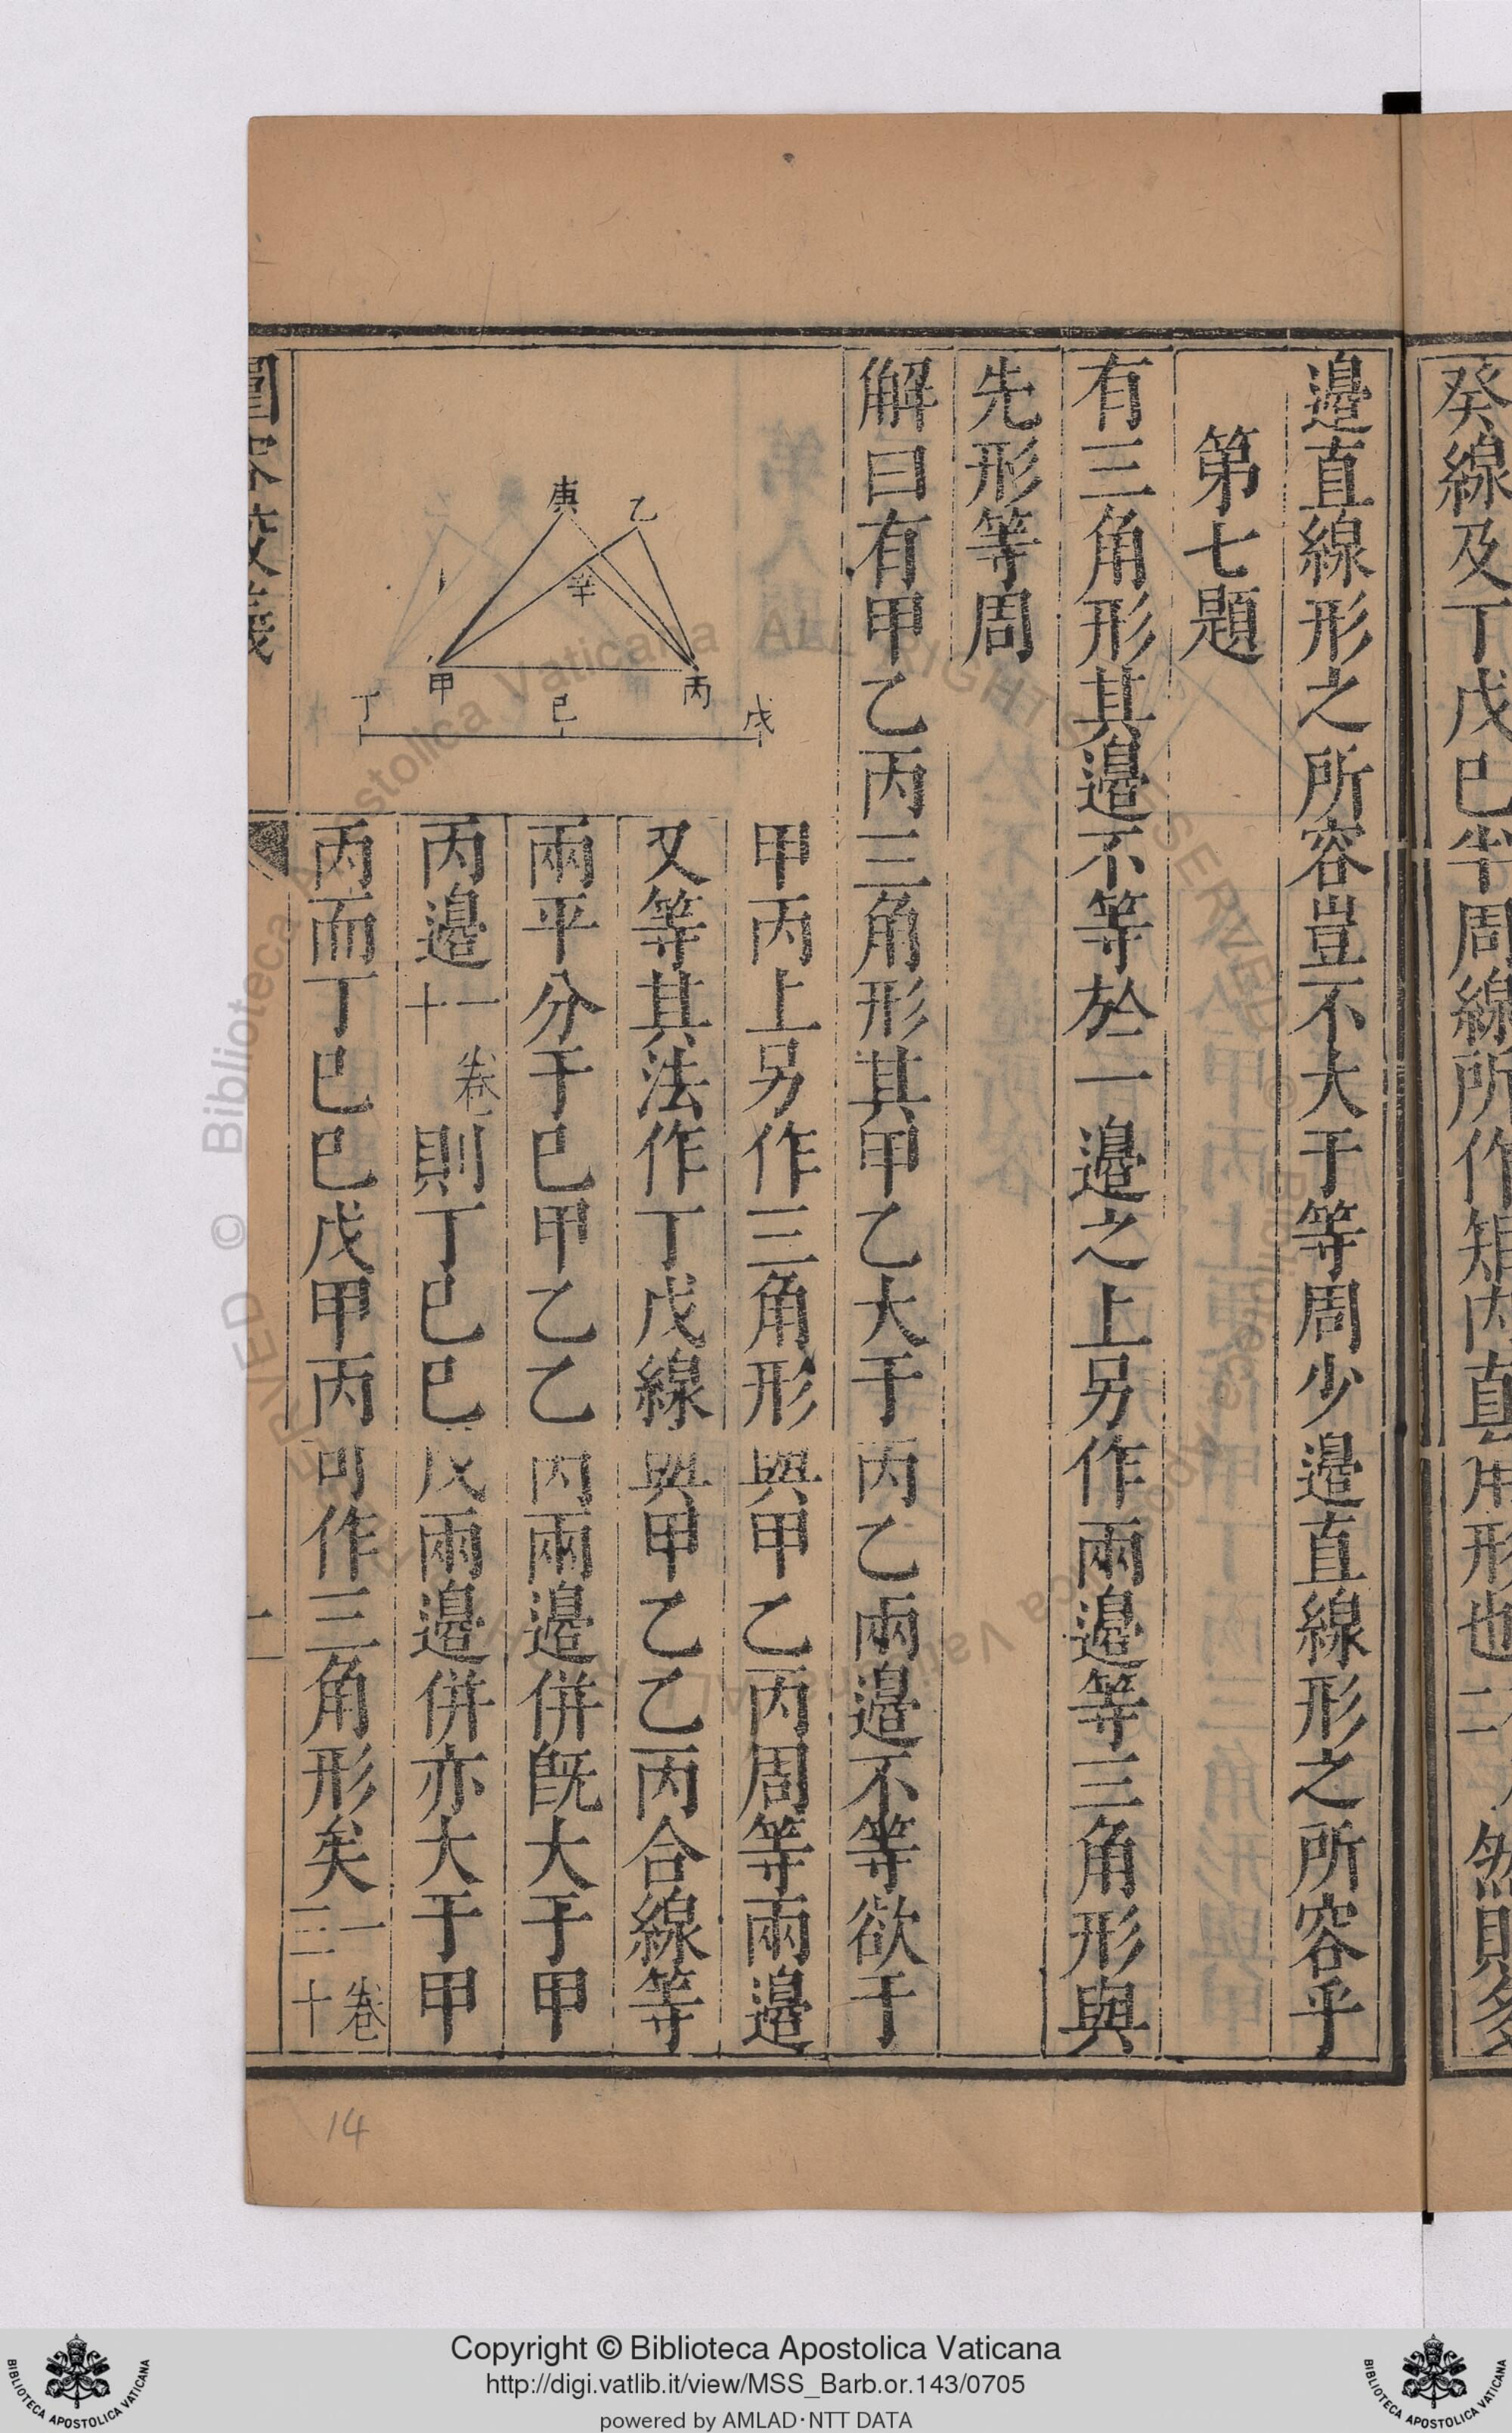 癸線及丁戊巳半周線所作矩內直角形也二 然則多
邉直線形之所容豈不大于等周少邉直線形之所容乎
第七題
有三角形其邉不等於一邉之上另作兩邉等三角形與
先形等周
解曰有甲乙丙三角形其甲乙大于丙乙兩邉不等欲于
甲丙上另作三角形與甲乙丙周等兩邉
又等其法作丁戊線與甲乙乙丙合線等
兩平分于巳甲乙乙丙兩邉併旣大于甲
丙邉一卷二十則丁巳巳戊兩邉併亦大于甲
丙而丁巳巳戊甲丙可作三角形矣一卷二十
庚
乙
辛
甲
丙
丁
巳
戊
圜容較義
14
Copyright © Biblioteca Apostolica Vaticana
http://digi.vatlib.it/view/MSS_Barb.or.143/0705
powered by AMLAD·NTT DATA
BIBLIOTECA APOSTOLICA VATICANA
BIBLIOTECA APOSTOLICA VATICANA